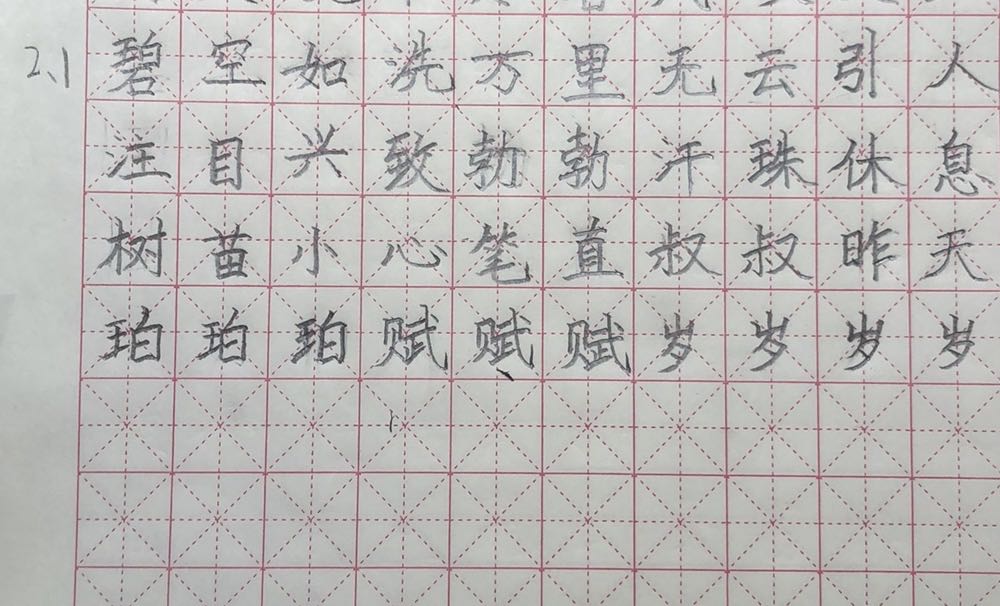 2.1 碧空如洗万里无云引人
注目兴致勃勃汗珠休息
树苗小心笔直叔叔昨天
珀珀珀赋赋赋岁岁岁岁